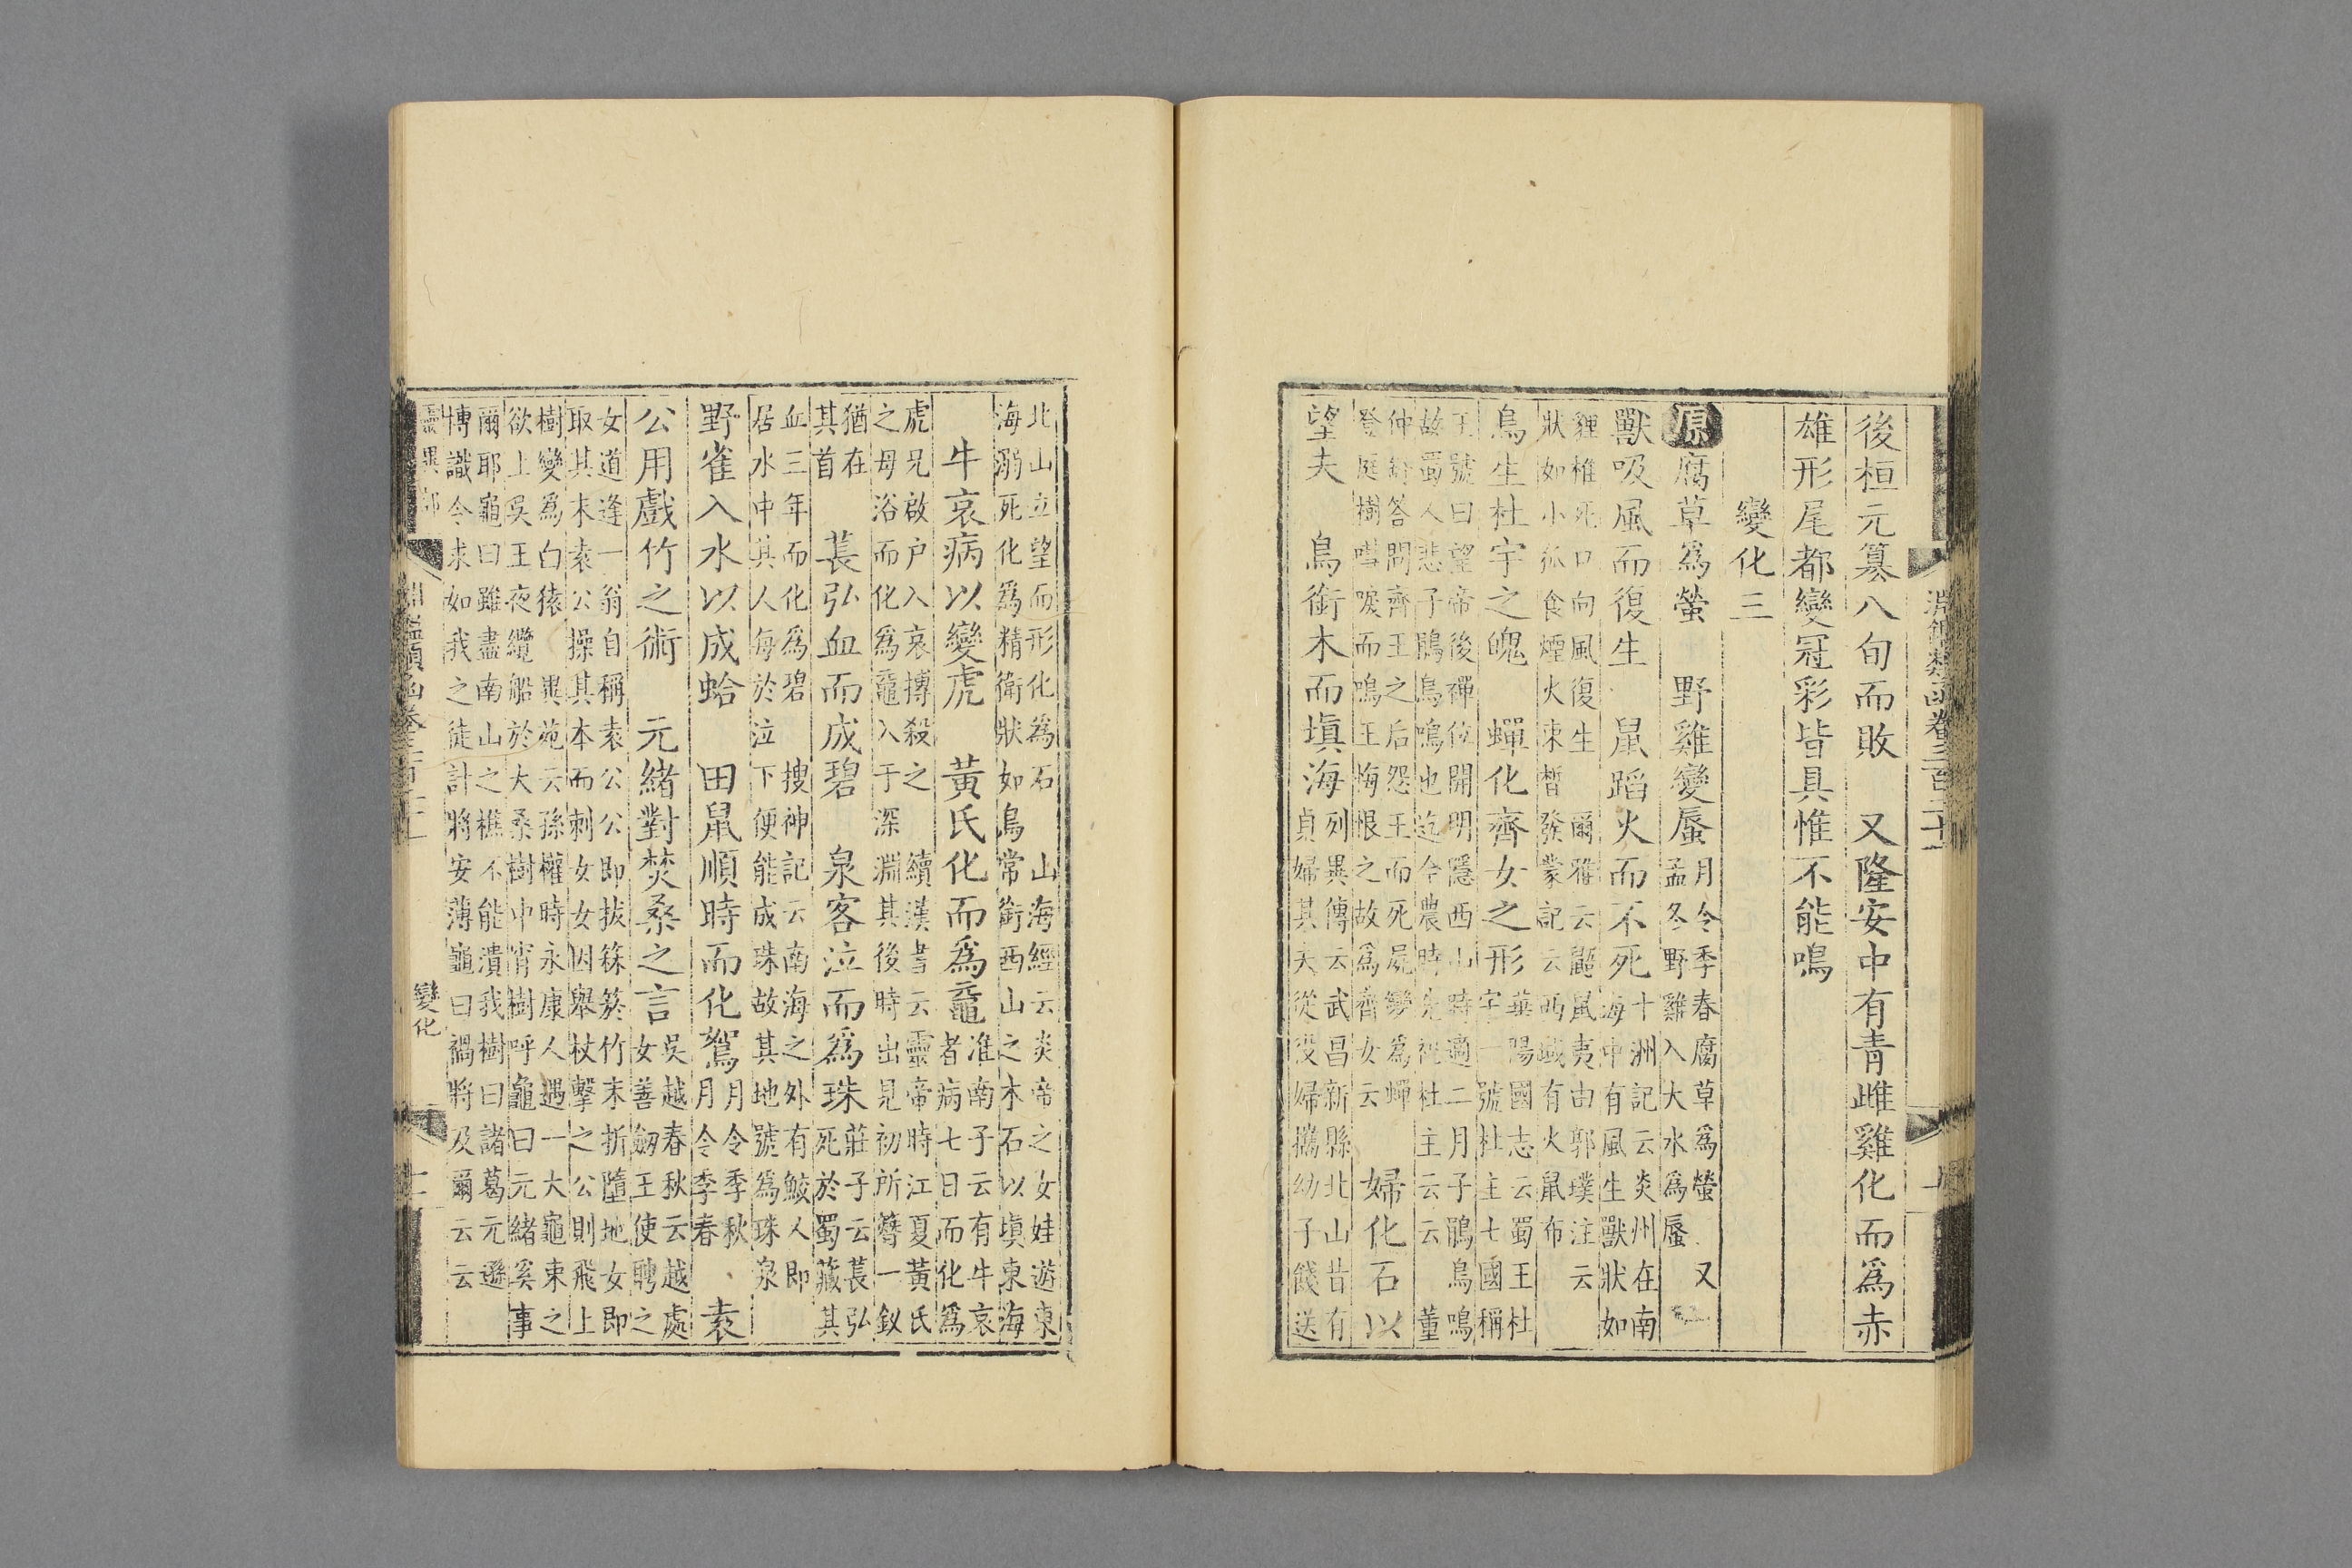 淵鑑類函卷三百二十
後桓元篡八旬而敗　又隆安中有青雌雞化而爲赤
雄形尾都變冠彩皆具惟不能鳴
變化三
原腐草爲螢　野雞變蜃月令季春腐草爲螢　又孟冬野雞入大水爲蜃
獸吸風而復生　鼠蹈火而不死十洲記云炎州在南海中有風生獸狀如
貍椎死口向風復生　爾雅云鼯鼠夷由郭璞注云狀如小狐食煙火束皙發蒙記云西域有火鼠布
鳥生杜宇之魄　蟬化齊女之形華陽國志云蜀王杜宇一號杜主七國稱
王號曰望帝後禪位開明隱西山時適二月子鵑鳥鳴故蜀人悲子鵑鳥鳴也迄今農時先祀杜主云云　董
仲舒答問齊王之后怨王而死屍變爲蟬登庭樹嘒唳而鳴王悔恨之故爲齊女云　婦化石以
望夫　鳥銜木而塡海列異傳云武昌新縣北山昔有貞婦其夫從役婦攜幼子餞送
北山立望而形化爲石　山海經云炎帝之女娃遊東海溺死化爲精衛狀如鳥常銜西山之木石以塡東海
牛哀病以變虎　黃氏化而爲黿淮南子云有牛哀者病七日而化爲
虎兄啟户入哀搏殺之　續漢書云靈帝時江夏黃氏之母浴而化爲黿入于深淵其後時出見初所簪一釵
猶在其首　萇弘血而成碧　泉客泣而爲珠莊子云萇弘死於蜀藏其
血三年而化爲碧　搜神記云南海之外有鮫人即居水中其人每於泣下便能成珠故其地號爲珠泉
野雀入水以成蛤　田鼠順時而化鴽月令季秋月令季春　袁
公用戲竹之術　元緒對焚桑之言吳越春秋云越處女善劒王使聘之
女道逢一翁自稱袁公公即拔箖箊竹末折墮地女即取其末袁公操其本而刺女女因舉杖擊之公則飛上
樹變爲白猿　異苑云孫權時永康人遇一大龜束之欲上吳王夜纜船於大桑樹中宵樹呼龜曰元緒奚事
爾耶龜曰雖盡南山之樵不能潰我樹曰諸葛元遜博識今求如我之徒計將安薄龜曰禍將及爾云云
靈異部
淵鑑類函卷三百二十
變化